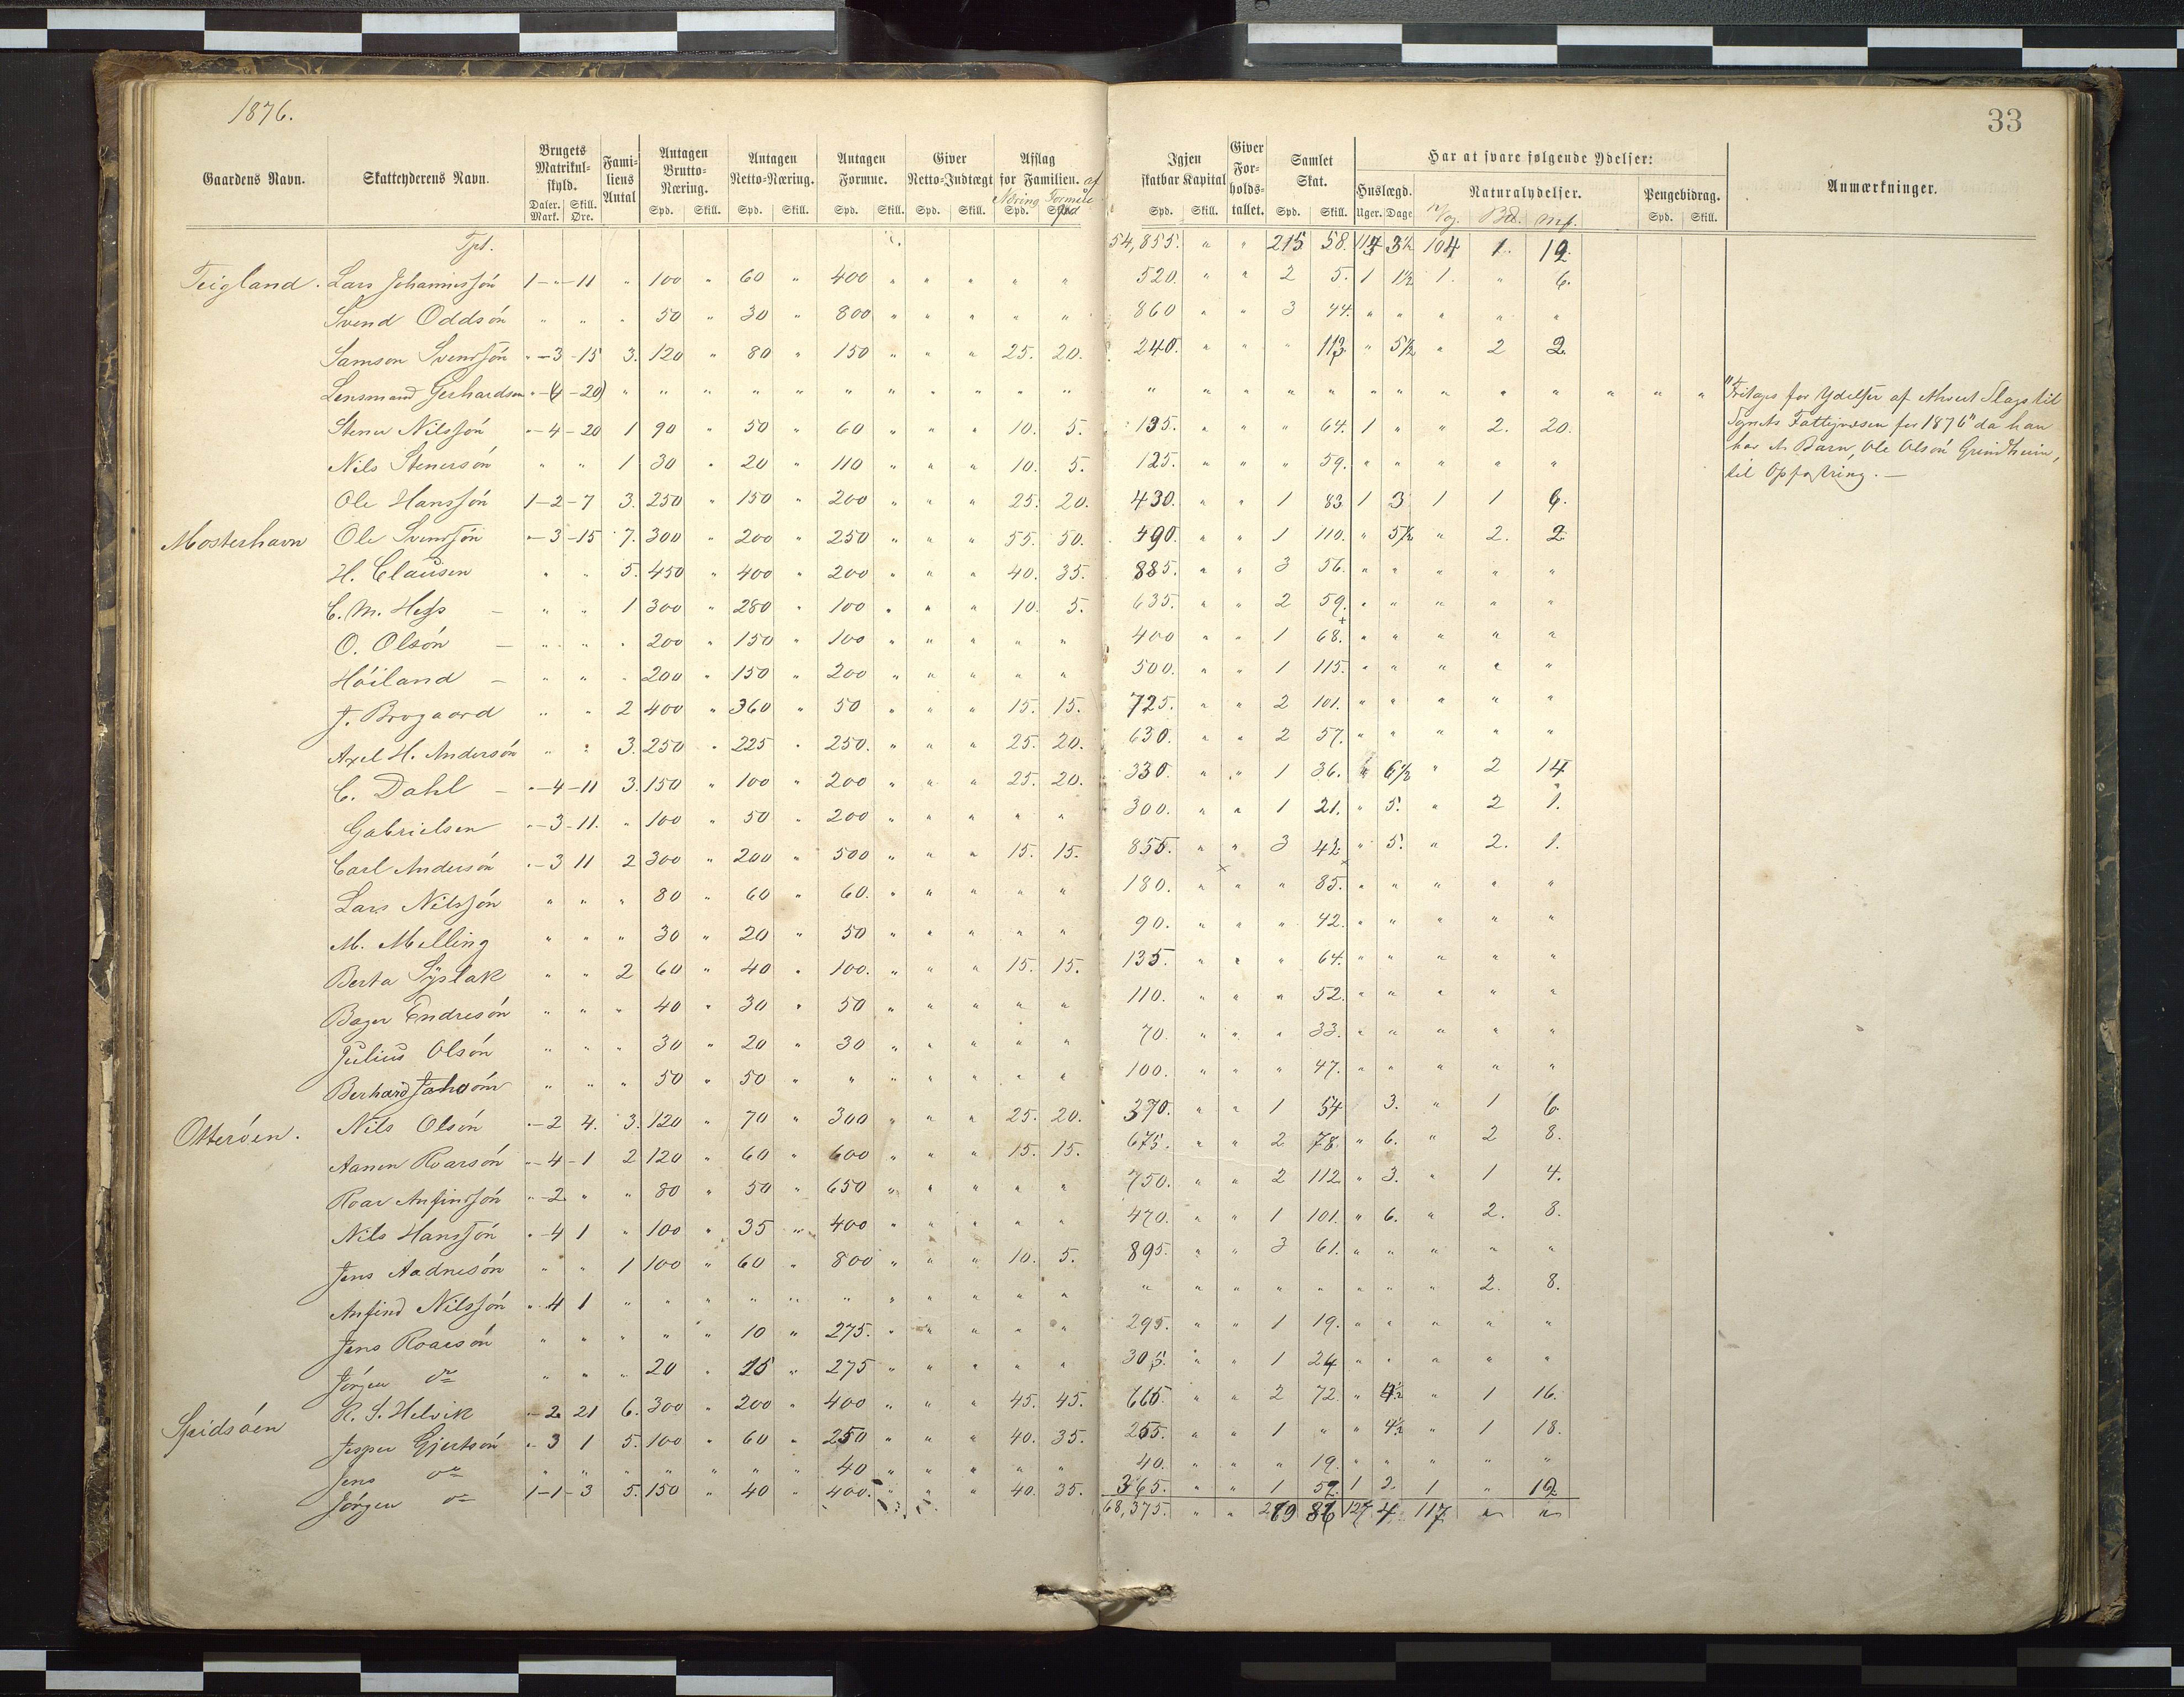 1876.
33
Gaardens Navn. Skatteyderens Navn. Brugets Matrikulskyld. Daler. Mark. Skill. Øre. Familiens Antal Antagen Brutto-Næring. Spd. Skill. Antagen Netto-Næring. Spd. Skill. Antagen Formue. Spd. Skill. Giver Netto-Indtægt Spd. Skill. Afslag for Familien. af Næring Formue Spd. Spd Igjen skatbar Kapital Spd. Skill. Giver Forholdstallet. Samlet Skat. Spd. Skill. Har at svare følgende Ydelser: Huslægd. Uger. Dage Naturalydelser. V/og. Bd. Mk. Pengebidrag. Spd. Skill. Anmærkninger.
Tpt. 54,855. " " 215 58. 114 3½ 104 1. 19.
Teigland. Lars Johannissón 1 - " - 11 " 100 " 60 " 400 " " " " " 520. " " 2 5. 1 1½ 1. " 6.
Svend Oddsón " " " 50 " 30 " 800 " " " " " 860 " " 3 44. " " " " "
Samson Svendsón " - 3 - 15 3. 120 " 80 " 150 " " " 25. 20. 240. " " " 113. " 5½ " 2 2.
Lensmand Gerhardsen " - (4 - 20) " " " " " " " " " " " " " " " " " " " " " " " " "
Stener Nilssón " - 4 - 20 1 90 " 50 " 60 " " " 10. 5. 135. " " " 64. 1 " " 2. 20.
Nils Stenersón " " 1 30 " 20 " 110 " " " 10. 5. 125. " " " 59. " " " " "
Ole Hanssón 1 - 2 - 7 3. 250 " 150 " 200 " " " 25. 20. 430. " " 1 83 1 3 1 1 6.
Mosterhavn Ole Svendsón " - 3 - 15 7. 300 " 200 " 250 " " " 55. 50. 490. " " 1 110. " 5½ " 2. 2
H. Clausen " " 5. 450 " 400 " 200 " " " 40. 35. 885. " " 3 56. " " " " "
C. M. Hess - " " 1 300 " 280 " 100 " " " 10. 5. 635. " " 2 59. " " " " "
O. Olsón - " " " 200 " 150 " 100 " " " " " 400 " " 1 68. " " " " "
Hóiland - " " " 200 " 150 " 200 " " " " " 500. " " 1 115. " " " " "
J. Brogaard " " 2 400 " 360 " 50 " " " 15. 15. 725. " " 2 101. " " " " "
Axel H. Andersón " " 3. 250 " 225 " 250. " " " 25. 20. 630. " " 2 57. " " " " "
C. Dahl - " - 4 - 11 3. 150 " 100 " 200 " " " 25. 20. 330. " " 1 36. " 6½ " 2 14
Gabrielsen " - 3 - 11. " 100 " 50 " 200 " " " " " 300. " " 1 21. " 5. " 2 1.
Carl Andersón " - 3 11 2 300 " 200 " 500 " " " 15. 15. 855. " " 3 42. " 5. " 2. 1.
Lars Nilssón " " " 80 " 60 " 60. " " " " " 180. " " " 85. " " " " "
M. Melling " " " 30 " 20 " 50 " " " " " 90. " " " 42. " " " " "
Berta Sÿslak " " 2 60 " 40 " 100. " " " 15. 15. 135. " " " 64. " " " " "
Bager Endresón " " " 40 " 30 " 50 " " " " " 110. " " " 52. " " " " "
Julius Olsón " " " 30 " 20 " 30 " " " " " 70. " " " 33. " " " " "
Berhard " " " 50 " 50 " " " " " " " 100. " " " 47. " " " " "
Otteróen. Nils Olsón " - 2 4. 3. 120 " 70 " 300 " " " 25. 20. 370. " " 1 54 3. " 1 6.
Aanen Roarsón " - 4 - 1 2 120 " 60 " 600 " " " 15. 15. 675. " " 2 78. " 6. " 2 8.
Roar Anfinssón " - 2 " " 80 " 50 " 650 " " " " " 750. " " 2 112. " 3. " 1 4.
Nils Hanssón " - 4 1 " 100 " 35 " 400 " " " " " 470. " " 1 101. " 6. " 2. 8.
Jens Aadnesón " " 1 100 " 60 " 800 " " " 10. 5. 895. " " 3 61. " " " " "
Anfind Nilssón " 4 1 " " " " " " " " " " " " " " " " " " " 2. 8.
Jens Roarsón " " " " " 10 " 275. " " " " " 295. " " 1 19. " " " " "
Jórgen do " " " 20 " 15 " 275 " " " " " 305. " " 1 24 " " " " "
Spidsóen R. S. Helvik " - 2 21 6. 300 " 200 " 400 " " " 45. 45. 665. " " 2 72. " 4½ " 1 16.
Jesper Gjertsón " 3 1 5. 100 " 60 " 250 " " " 40. 35. 255. " " 1 " " 4½ " 1 18.
Jens do " " " " " " " 40 " " " " " 40. " " " 19. " " " " "
Jórgen do 1 - 1 - 3 5. 150 " 40 " 400. " " " 40. 35. 365. " " 1 52. 1 2. 1 " 12
68,375. " " 269 86 127 4 117 " "
"Fritages for Ydelser af ethvert Slags til
Sognets Fattigvæsen for 1876" da han
har et Barn, Ole Olsón Grindheim,
til Opfostring. -